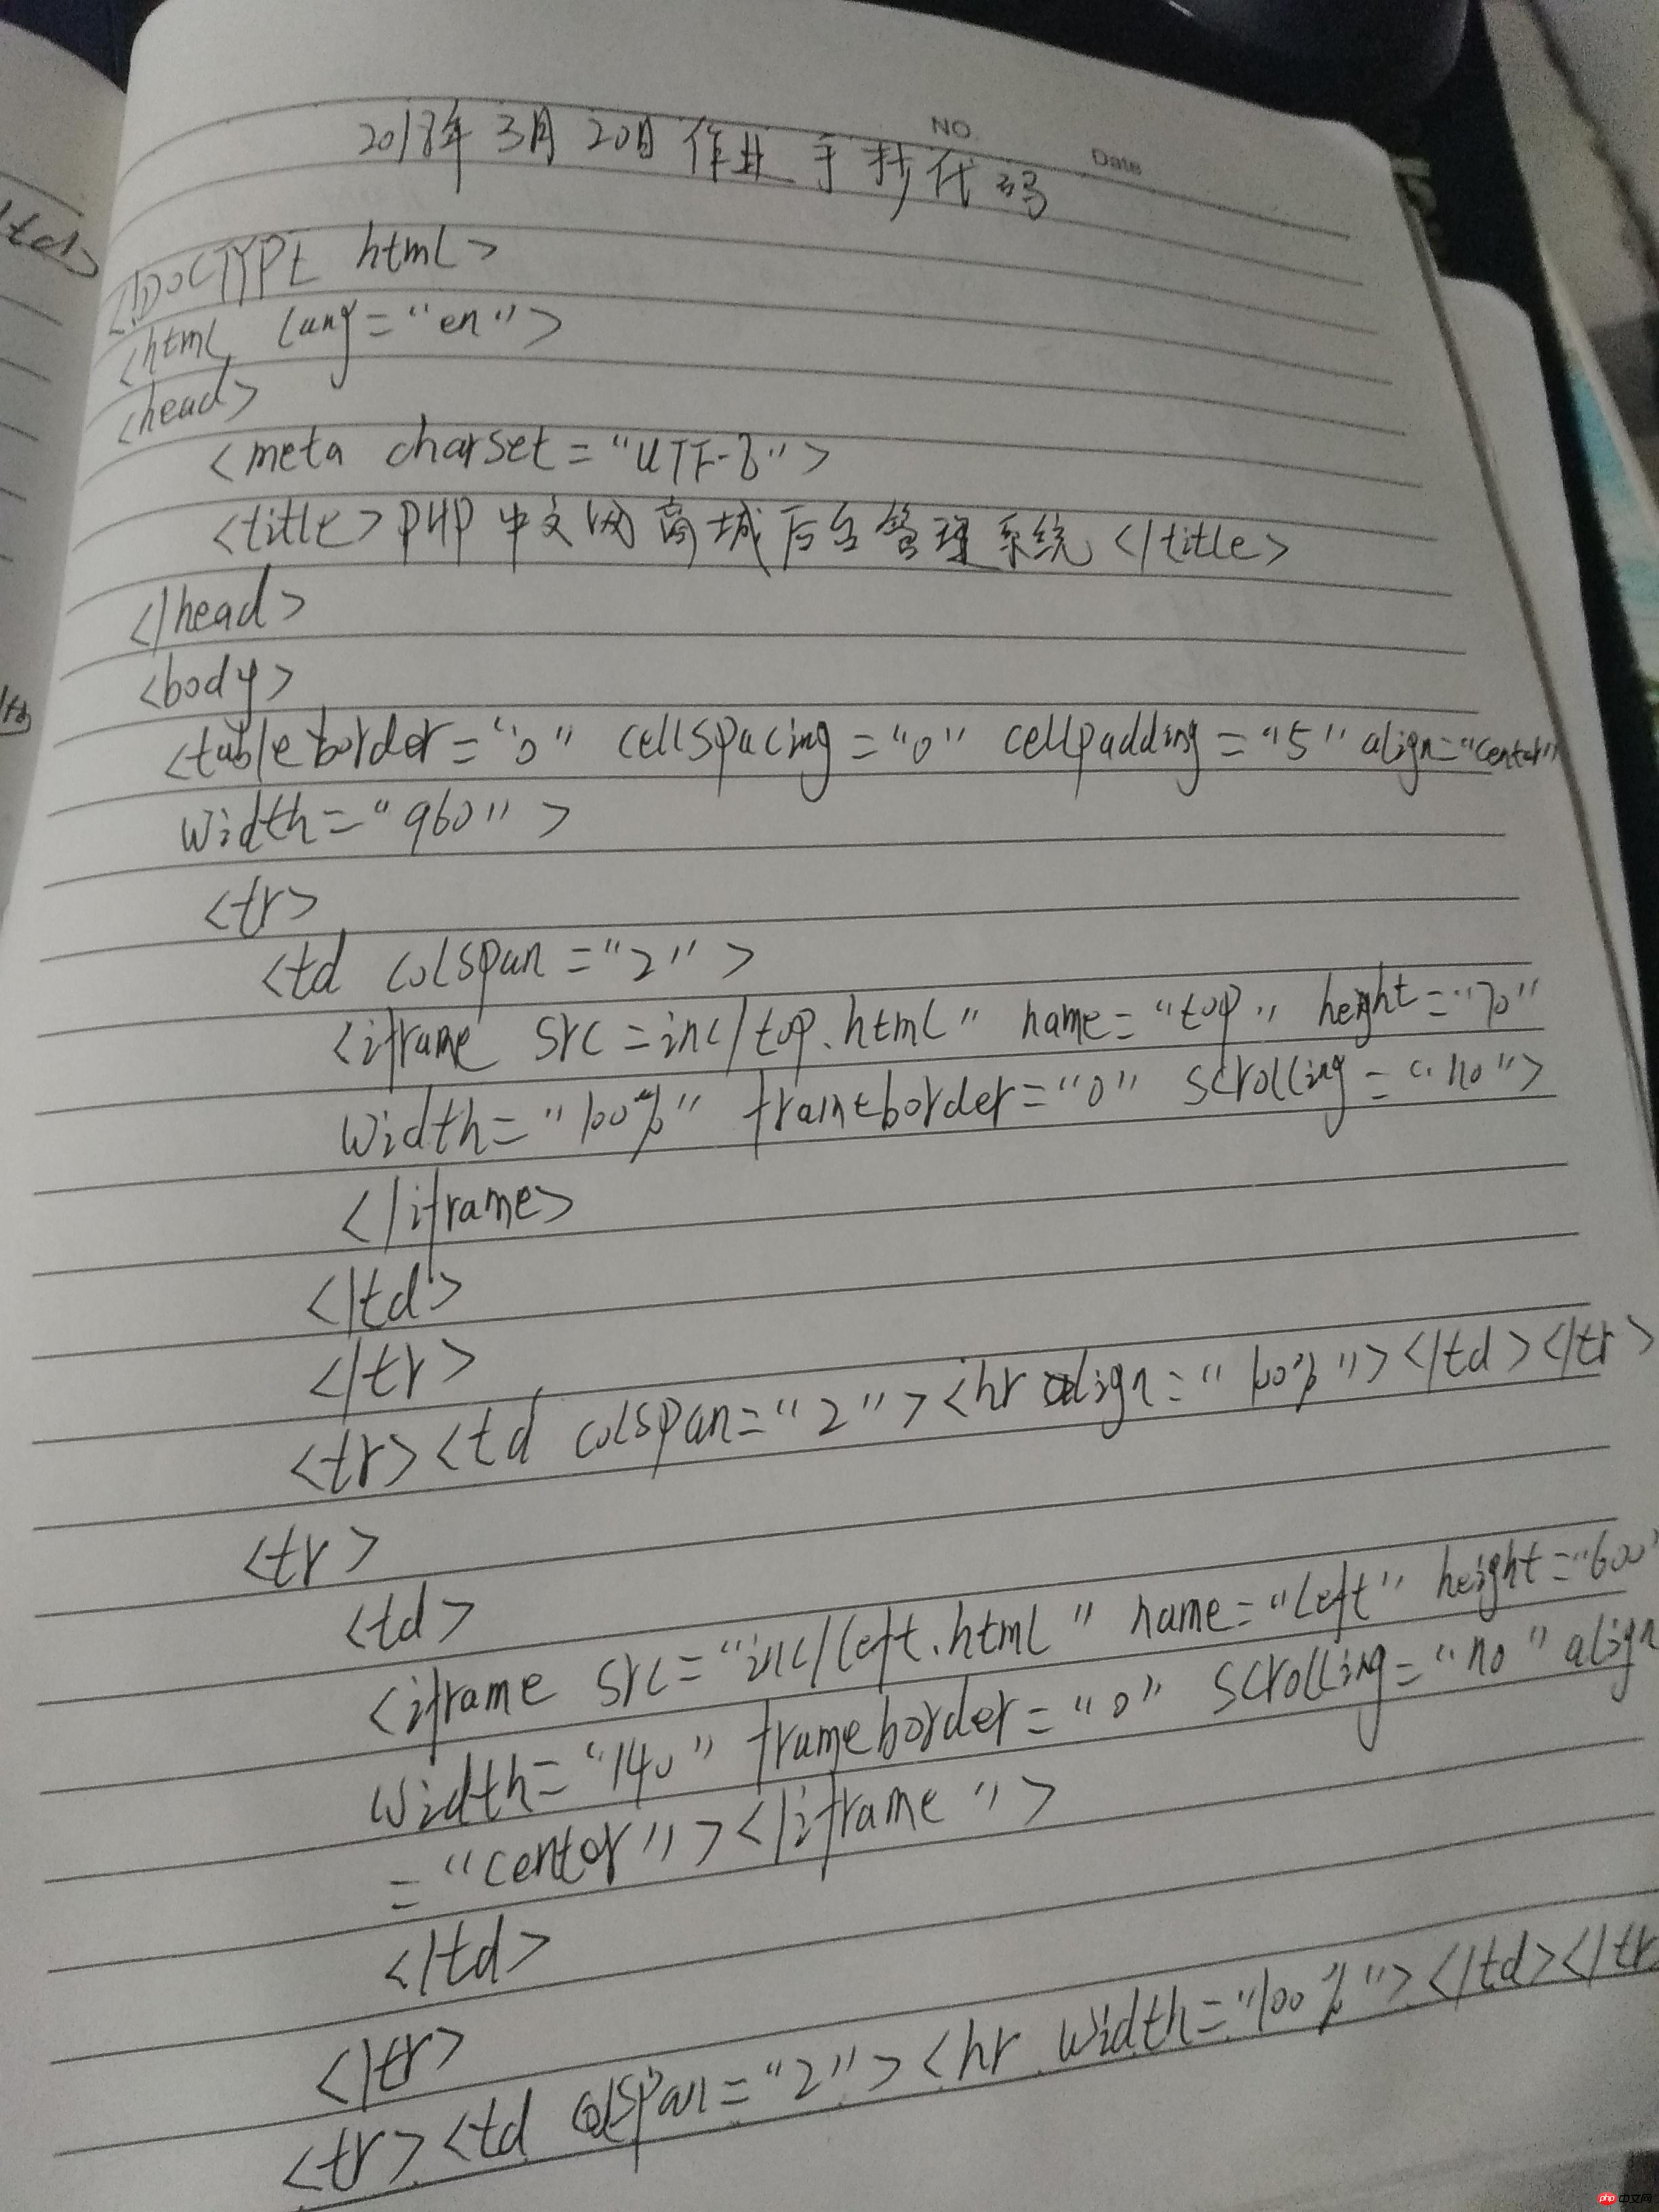 NO.
Date
2018年3月20日 作业 手抄代码
<!DOCTYPE html>
<html lang="en">
<head>
<meta charset="UTF-8">
<title>PHP中文网商城后台管理系统</title>
</head>
<body>
<table border="0" cellspacing="0" cellpadding="5" align="center"
width="960">
<tr>
<td colspan="2">
<iframe src=inc/top.html" name="top" height="70"
width="100%" frameborder="0" scrolling="no">
</iframe>
</td>
</tr>
<tr><td colspan="2"><hr align="100%"></td></tr>
<tr>
<td>
<iframe src="inc/left.html" name="left" height="600"
width="140" frameborder="0" scrolling="no" align
="center"></iframe">
</td>
</tr>
<tr><td colspan="2"><hr width="100%"></td></tr
/td>
/td>
php 中文网